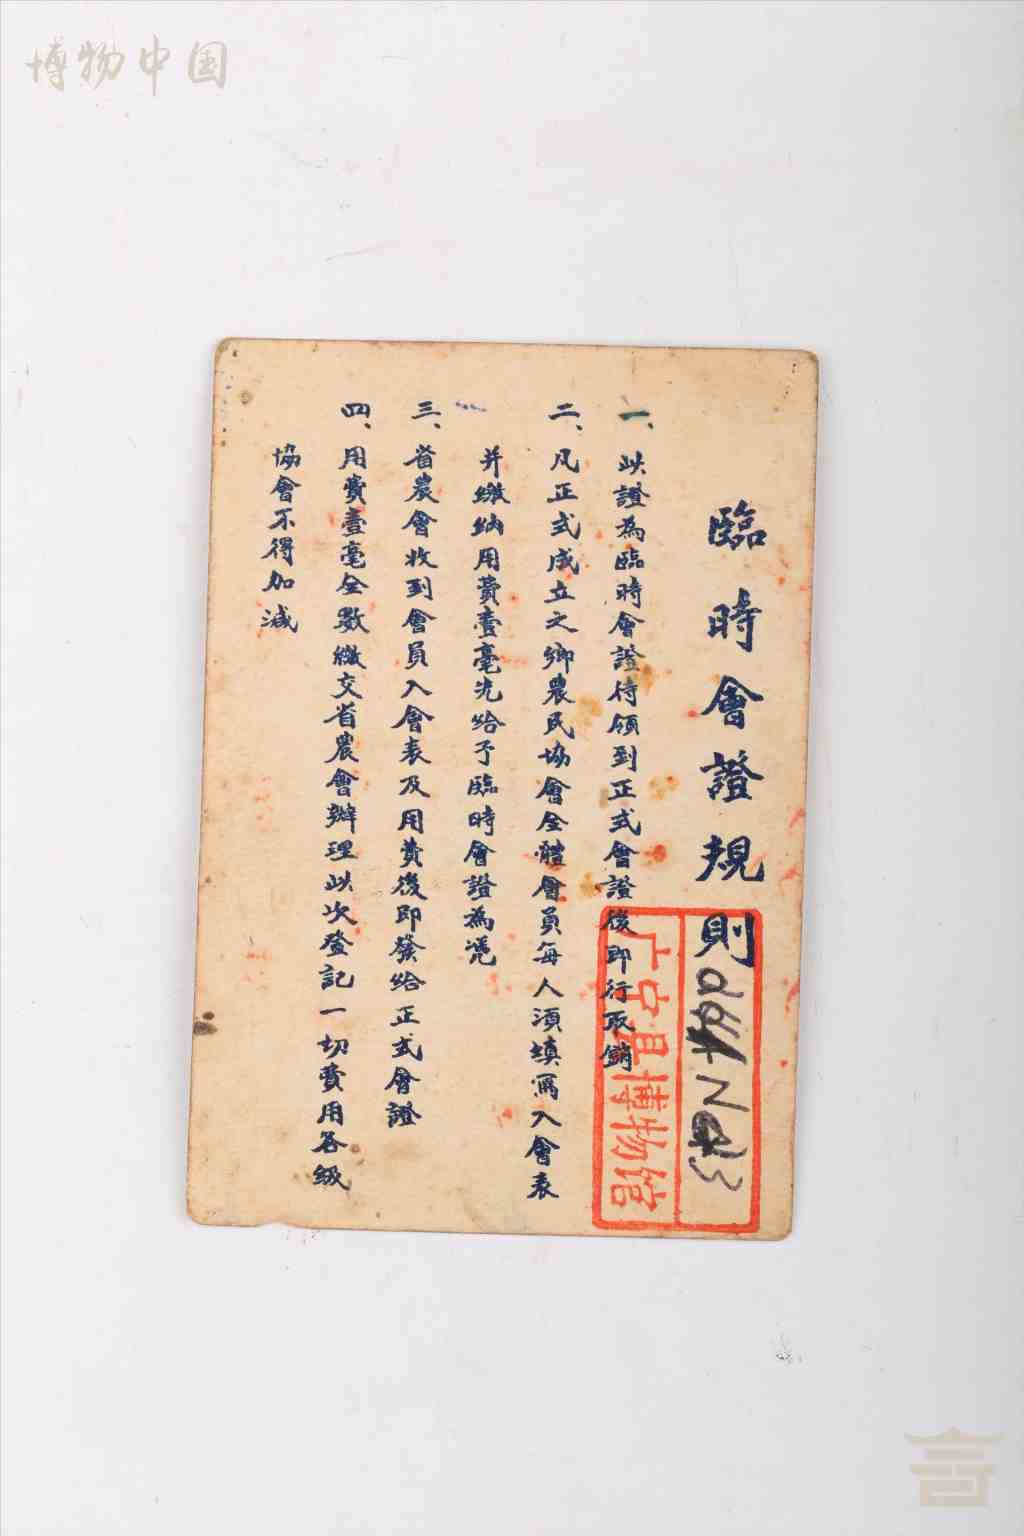 博物中国
臨時會證規則
一、此證為臨時會證待領到正式會證後即行取銷
二、凡正式成立之鄉農民協會全體會員每人須填寫入會表
并繳納用費壹毫先給予臨時會證為凴
三、省農會收到會員入會表及用費後即發給正式會證
四、用費壹毫全數繳交省農會辦理此次登記一切費用各級
協會不得加減
广宁县博物馆